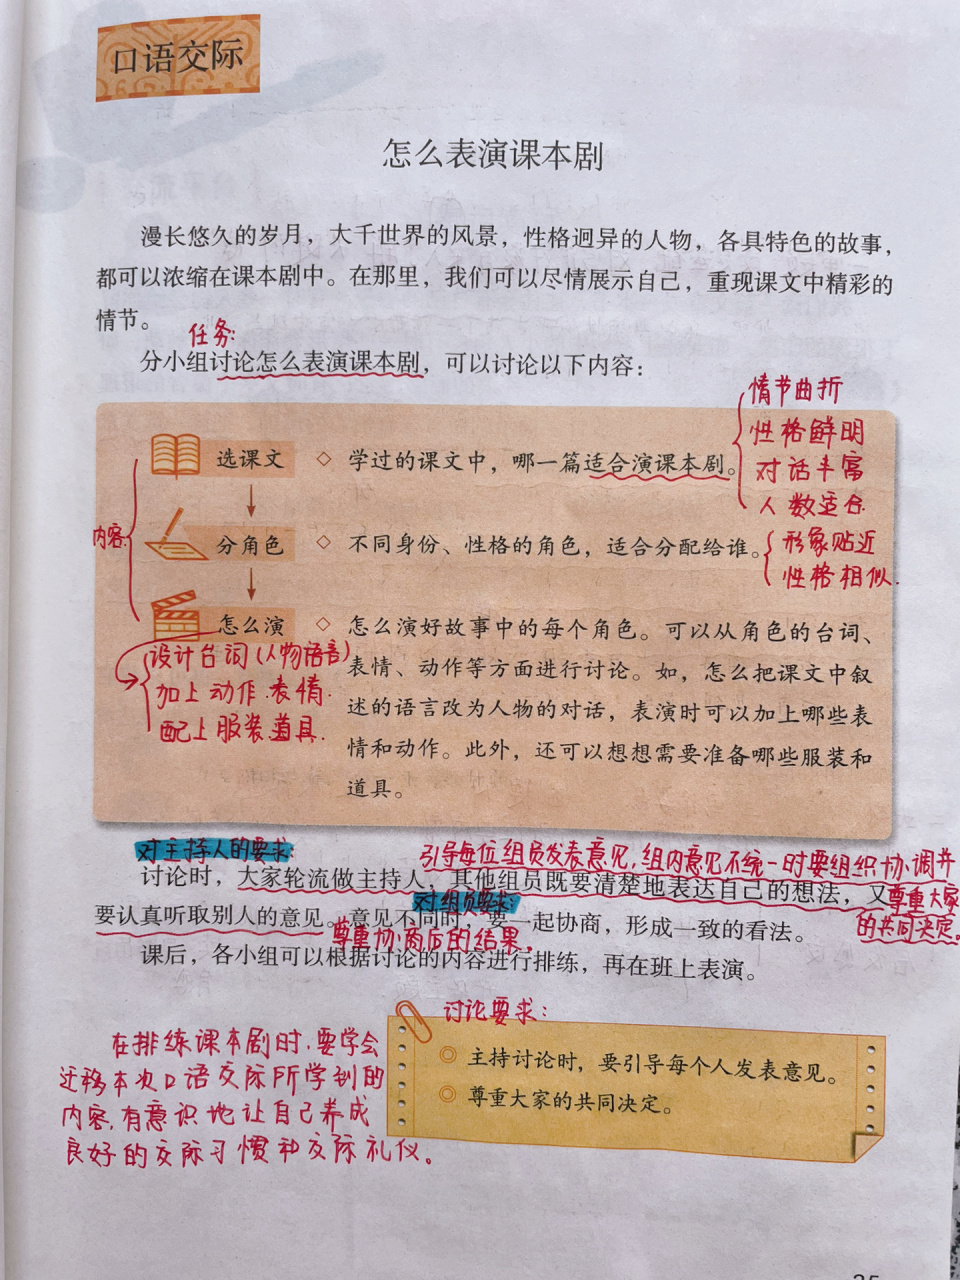 口语交际
怎么表演课本剧
漫长悠久的岁月，大千世界的风景，性格迥异的人物，各具特色的故事，
都可以浓缩在课本剧中。在那里，我们可以尽情展示自己，重现课文中精彩的
情节。
任务：
分小组讨论怎么表演课本剧，可以讨论以下内容：
情节曲折
性格鲜明
对话丰富
人数适合
内容
选课文
学过的课文中，哪一篇适合演课本剧。
分角色
不同身份、性格的角色，适合分配给谁。
形象贴近
性格相似.
怎么演
怎么演好故事中的每个角色。可以从角色的台词、
表情、动作等方面进行讨论。如，怎么把课文中叙
述的语言改为人物的对话，表演时可以加上哪些表
情和动作。此外，还可以想想需要准备哪些服装和
道具。
设计台词（人物语言）
加上动作.表情.
配上服装道具.
对主持人的要求：
引导每位组员发表意见，组内意见不统一时要组织协调并
尊重大家
的共同决定。
讨论时，大家轮流做主持人，其他组员既要清楚地表达自己的想法，又
对组员要求：
要认真听取别人的意见。意见不同时，要一起协商，形成一致的看法。
尊重协商后的结果，
课后，各小组可以根据讨论的内容进行排练，再在班上表演。
讨论要求：
主持讨论时，要引导每个人发表意见。
尊重大家的共同决定。
在排练课本剧时，要学会
迁移本次口语交际所学到的
内容，有意识地让自己养成
良好的交际习惯和交际礼仪。